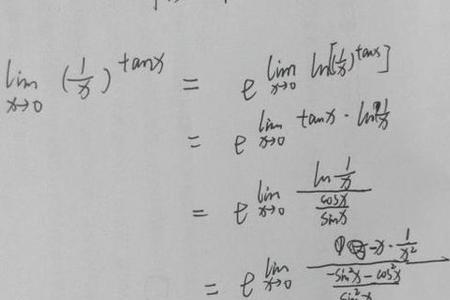 lim x→0 (1/x)^tanx = e^lim x→0 ln[(1/x)^tanx]
= e^lim x→0 tanx · ln 1/x
= e^lim x→0 (ln 1/x)/(cosx/sinx)
= e^lim x→0 (-x · 1/x²)/((-sin²x - cos²x)/sin²x)